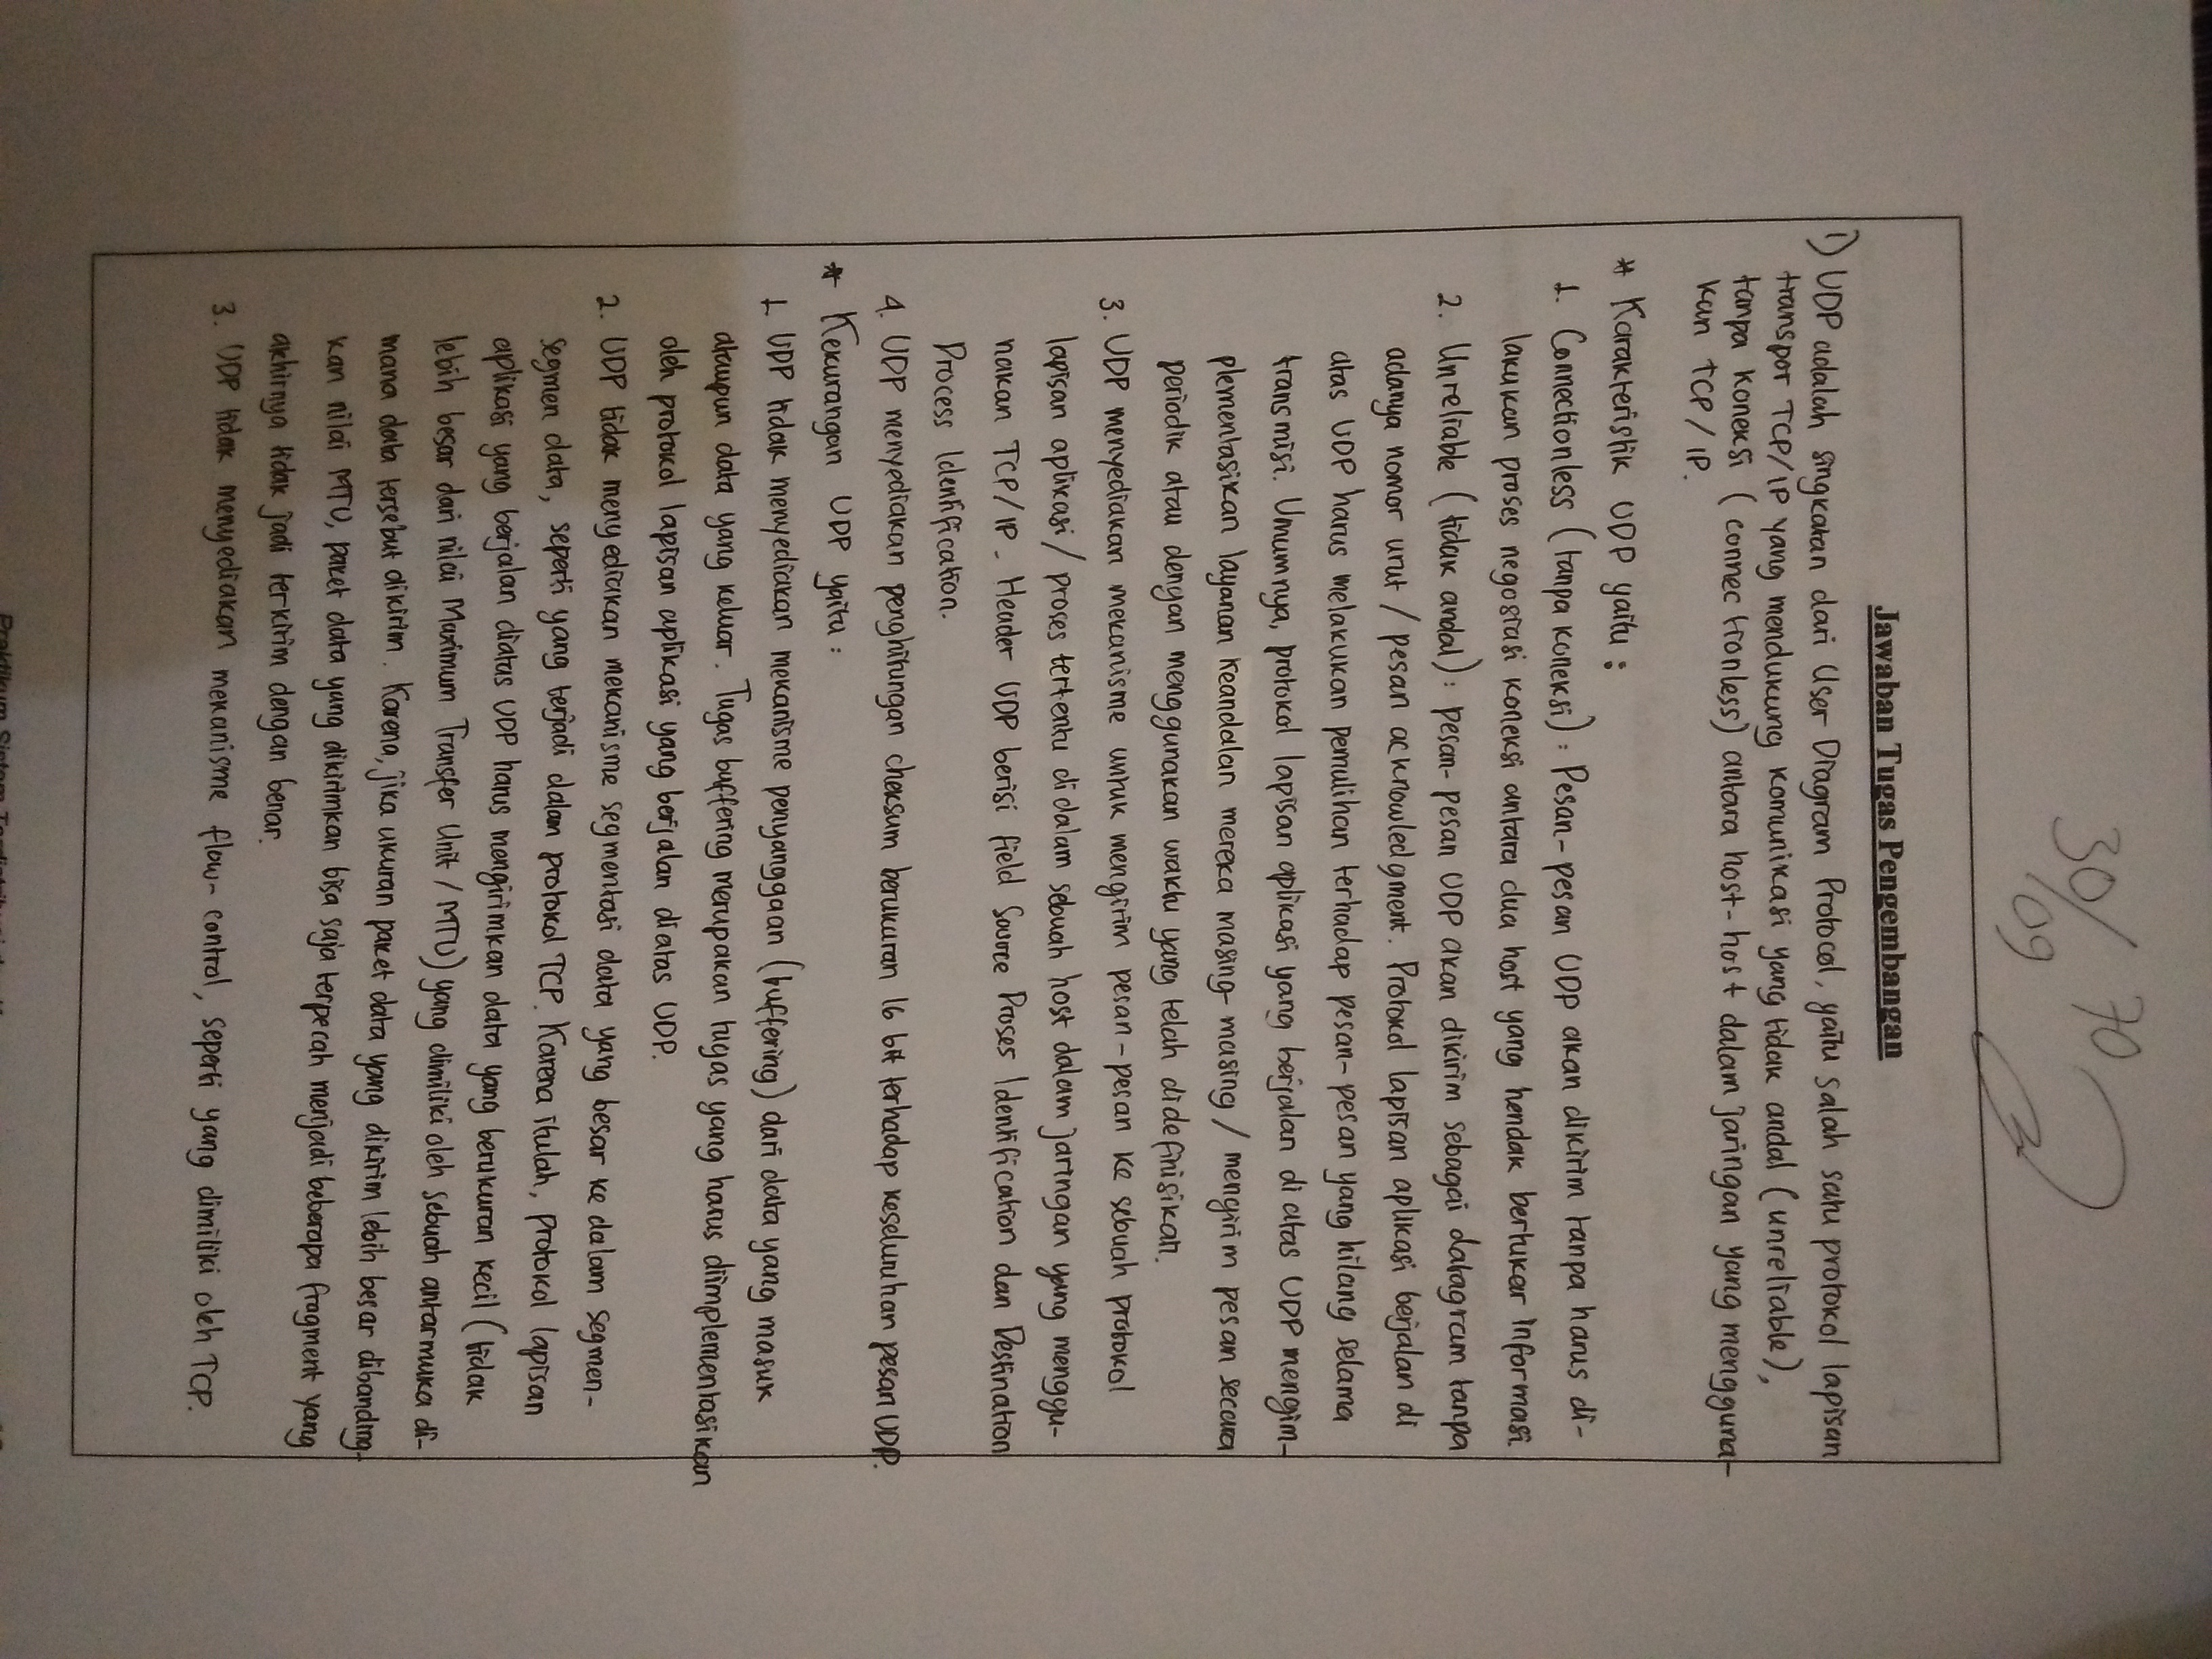 30/09 70
Jawaban Tugas Pengembangan
1) UDP adalah singkatan dari User Diagram Protocol, yaitu salah satu protokol lapisan
transpor TCP/IP yang mendukung komunikasi yang tidak andal (unreliable),
tanpa koneksi (connectionless) antara host-host dalam jaringan yang mengguna-
kan TCP/IP.
* Karakteristik UDP yaitu :
1. Connectionless (tanpa koneksi) : Pesan-pesan UDP akan dikirim tanpa harus di-
lakukan proses negosiasi koneksi antara dua host yang hendak bertukar informasi.
2. Unreliable (tidak andal) : pesan-pesan UDP akan dikirim sebagai datagram tanpa
adanya nomor urut / pesan acknowledgment. Protokol lapisan aplikasi berjalan di
atas UDP harus melakukan pemulihan terhadap pesan-pesan yang hilang selama
transmisi. Umumnya, protokol lapisan aplikasi yang berjalan di atas UDP mengim-
plementasikan layanan keandalan mereka masing-masing / mengirim pesan secara
periodik atau dengan menggunakan waktu yang telah didefinisikan.
3. UDP menyediakan mekanisme untuk mengirim pesan-pesan ke sebuah protokol
lapisan aplikasi/ proses tertentu didalam sebuah host dalam jaringan yang menggu-
nakan TCP/IP. Header UDP berisi field Source Proses Identification dan Destination
Process Identification.
4. UDP menyediakan penghitungan cheksum berukuran 16 bit terhadap keseluruhan pesan UDP.
* Kekurangan UDP yaitu :
1. UDP tidak menyediakan mekanisme penyanggaan (buffering) dari data yang masuk
ataupun data yang keluar. Tugas buffering merupakan tugas yang harus diimplementasikan
oleh protokol lapisan aplikasi yang berjalan diatas UDP.
2. UDP tidak menyediakan mekanisme segmentasi data yang besar ke dalam segmen-
segmen data, seperti yang terjadi dalam protokol TCP. Karena itulah, protokol lapisan
aplikasi yang berjalan diatas UDP harus mengirimkan data yang berukuran kecil (tidak
lebih besar dari nilai Maximum Transfer Unit / MTU) yang dimiliki oleh sebuah antarmuka di-
mana data tersebut dikirim. Karena, jika ukuran paket data yang dikirim lebih besar dibanding-
kan nilai MTU, paket data yang dikirimkan bisa saja terpecah menjadi beberapa fragment yang
akhirnya tidak jadi terkirim dengan benar.
3. UDP tidak menyediakan mekanisme flow-control, seperti yang dimiliki oleh TCP.
Praktikum Sistem Terdistribusi